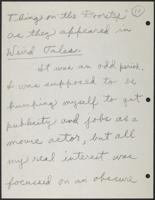 Things on the Doorstep" 11
as they appeared in
Weird Tales.
It was an odd period.
I was supposed to be
humping myself to get
publicity and jobs as a
movie actor, but all
my real interest was
focussed on an obscure